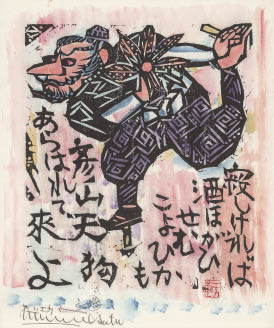 寂しければ
酒ほがひ
せむ
こよひか
も
彦山天狗
あらはれて
來よ